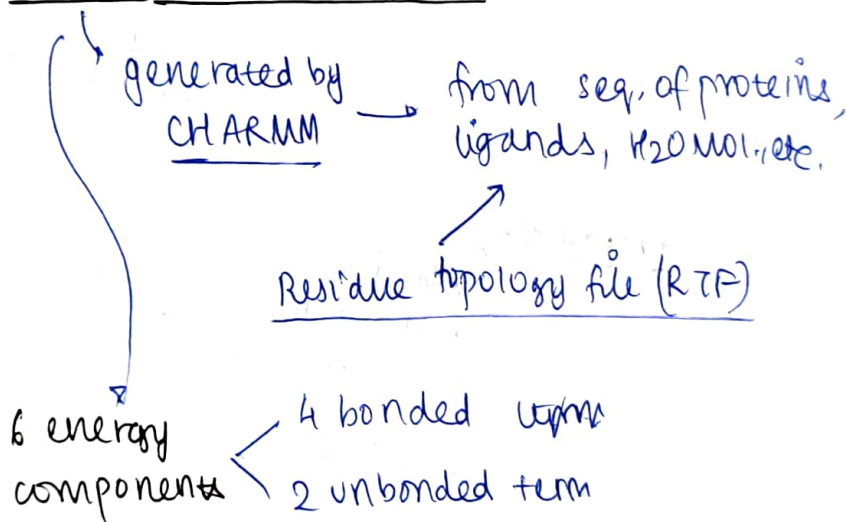 generated by
CHARMM
from seq. of proteins,
ligands, H2O mol., etc.
Residue topology file (RTF)
6 energy
components
4 bonded
2 unbonded term